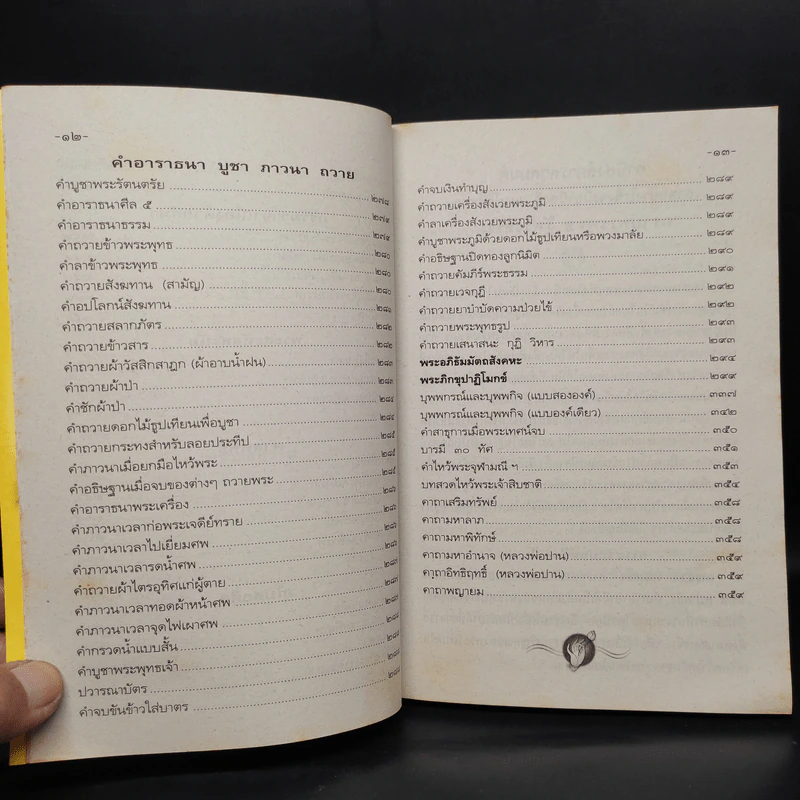 -๑๒-
คำอาราธนา บูชา ภาวนา ถวาย
คำบูชาพระรัตนตรัย ๒๗๘
คำอาราธนาศีล ๕ ๒๗๙
คำอาราธนาธรรม ๒๗๙
คำถวายข้าวพระพุทธ ๒๘๐
คำลาข้าวพระพุทธ ๒๘๐
คำถวายสังฆทาน (สามัญ) ๒๘๐
คำอปโลกน์สังฆทาน
คำถวายสลากภัตร ๒๘๒
คำถวายข้าวสาร ๒๘๒
คำถวายผ้าวัสสิกสาฎก (ผ้าอาบน้ำฝน) ๒๘๓
คำถวายผ้าป่า
คำชักผ้าป่า ๒๘๔
คำถวายดอกไม้ธูปเทียนเพื่อบูชา
คำถวายกระทงสำหรับลอยประทีป
คำภาวนาเมื่อยกมือไหว้พระ
คำอธิษฐานเมื่อจบของต่างๆ ถวายพระ
คำอาราธนาพระเครื่อง
คำภาวนาเวลาก่อพระเจดีย์ทราย
คำภาวนาเวลาไปเยี่ยมศพ
คำภาวนาเวลารดน้ำศพ
คำถวายผ้าไตรอุทิศแก่ผู้ตาย
คำภาวนาเวลาทอดผ้าหน้าศพ
คำภาวนาเวลาจุดไฟเผาศพ
คำกรวดน้ำแบบสั้น
คำบูชาพระพุทธเจ้า
ปวารณาบัตร
คำจบขันข้าวใส่บาตร
-๑๓-
คำจบเงินทำบุญ ๒๘๙
คำถวายเครื่องสังเวยพระภูมิ ๒๘๙
คำลาเครื่องสังเวยพระภูมิ ๒๘๙
คำบูชาพระภูมิด้วยดอกไม้ธูปเทียนหรือพวงมาลัย ๒๘๙
คำอธิษฐานปิดทองลูกนิมิต ๒๙๐
คำถวายคัมภีร์พระธรรม ๒๙๑
คำถวายเวจกุฎี ๒๙๒
คำถวายยาบำบัดความป่วยไข้ ๒๙๒
คำถวายพระพุทธรูป ๒๙๓
คำถวายเสนาสนะ กุฏิ วิหาร ๒๙๓
พระอภิธัมมัตถสังคหะ ๒๙๔
พระภิกขุปาฏิโมกข์ ๒๙๙
บุพพกรณ์และบุพพกิจ (แบบสององค์) ๓๓๗
บุพพกรณ์และบุพพกิจ (แบบองค์เดียว) ๓๔๒
คำสาธุการเมื่อพระเทศน์จบ ๓๕๐
บารมี ๓๐ ทัศ ๓๕๑
คำไหว้พระจุฬามณี ฯ ๓๕๓
บทสวดไหว้พระเจ้าสิบชาติ ๓๕๔
คาถาเสริมทรัพย์ ๓๕๘
คาถามหาลาภ ๓๕๘
คาถามหาพิทักษ์ ๓๕๘
คาถามหาอำนาจ (หลวงพ่อปาน) ๓๕๙
คาถาอิทธิฤทธิ์ (หลวงพ่อปาน) ๓๕๙
คาถาพญายม ๓๕๙